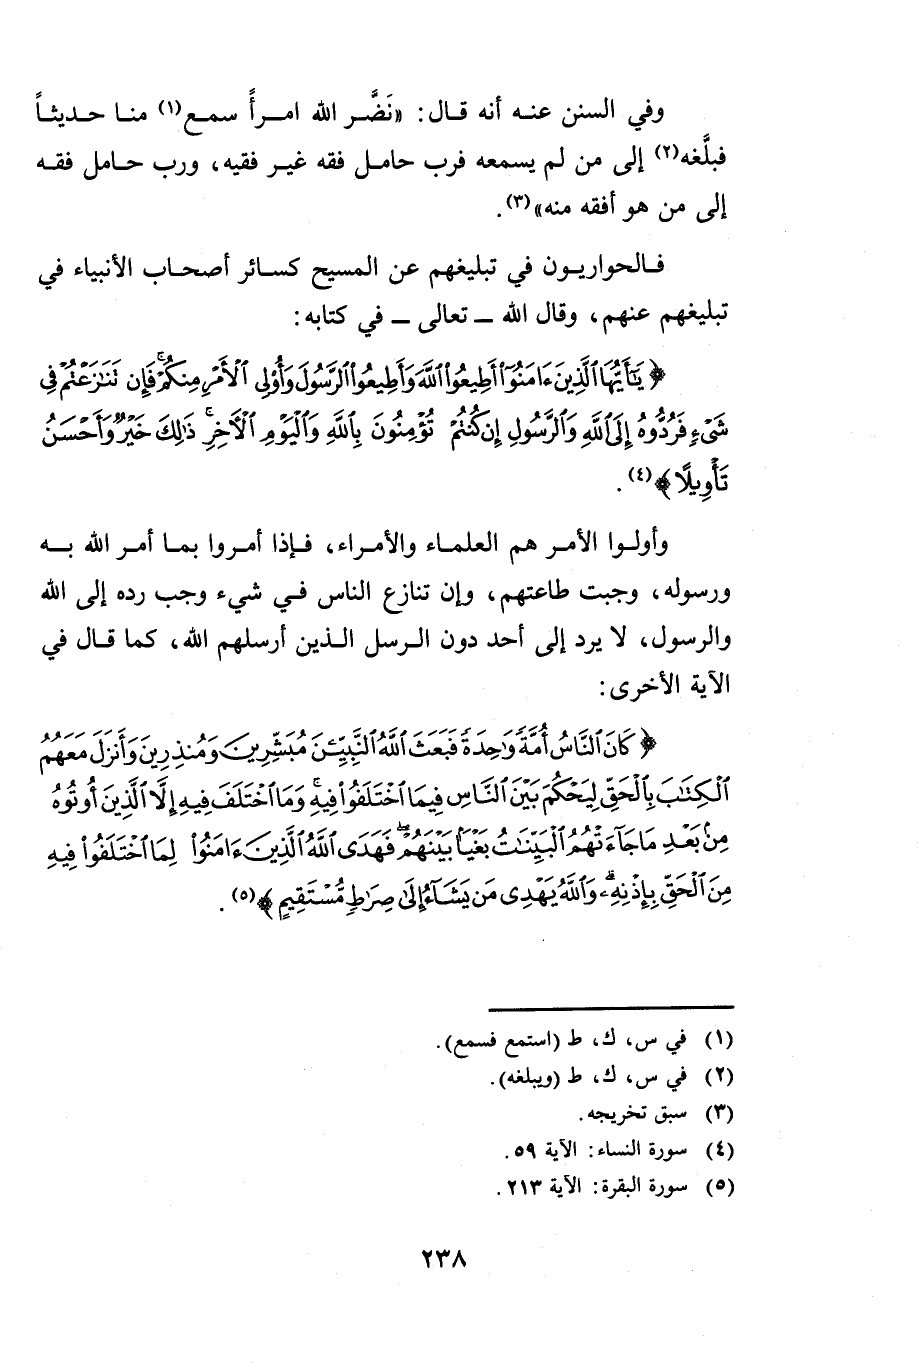 وفي السنن عنه أنه قال: «نَضَّر الله امرأً سمع(١) منا حديثاً
فبلَّغه(٢) إلى من لم يسمعه فرب حامل فقه غير فقيه، ورب حامل فقه
إلى من هو أفقه منه»(٣).
فالحواريون في تبليغهم عن المسيح كسائر أصحاب الأنبياء في
تبليغهم عنهم، وقال الله ــ تعالى ــ في كتابه:
﴿ يَٰٓأَيُّهَا ٱلَّذِينَ ءَامَنُوٓا۟ أَطِيعُوا۟ ٱللَّهَ وَأَطِيعُوا۟ ٱلرَّسُولَ وَأُو۟لِى ٱلْأَمْرِ مِنكُمْ ۖ فَإِن تَنَٰزَعْتُمْ فِى
شَىْءٍ فَرُدُّوهُ إِلَى ٱللَّهِ وَٱلرَّسُولِ إِن كُنتُمْ تُؤْمِنُونَ بِٱللَّهِ وَٱلْيَوْمِ ٱلْأَخِرِ ۚ ذَٰلِكَ خَيْرٌ وَأَحْسَنُ
تَأْوِيلًا ﴾(٤).
وأولوا الأمر هم العلماء والأمراء، فإذا أمروا بما أمر الله به
ورسوله، وجبت طاعتهم، وإن تنازع الناس في شيء وجب رده إلى الله
والرسول، لا يرد إلى أحد دون الرسل الذين أرسلهم الله، كما قال في
الآية الأخرى:
﴿ كَانَ ٱلنَّاسُ أُمَّةً وَٰحِدَةً فَبَعَثَ ٱللَّهُ ٱلنَّبِيِّـۧنَ مُبَشِّرِينَ وَمُنذِرِينَ وَأَنزَلَ مَعَهُمُ
ٱلْكِتَٰبَ بِٱلْحَقِّ لِيَحْكُمَ بَيْنَ ٱلنَّاسِ فِيمَا ٱخْتَلَفُوا۟ فِيهِ ۚ وَمَا ٱخْتَلَفَ فِيهِ إِلَّا ٱلَّذِينَ أُوتُوهُ
مِنۢ بَعْدِ مَا جَآءَتْهُمُ ٱلْبَيِّنَٰتُ بَغْيًۢا بَيْنَهُمْ ۖ فَهَدَى ٱللَّهُ ٱلَّذِينَ ءَامَنُوا۟ لِمَا ٱخْتَلَفُوا۟ فِيهِ
مِنَ ٱلْحَقِّ بِإِذْنِهِۦ ۗ وَٱللَّهُ يَهْدِى مَن يَشَآءُ إِلَىٰ صِرَٰطٍ مُّسْتَقِيمٍ ﴾(٥).
(١) في س، ك، ط (استمع فسمع).
(٢) في س، ك، ط (ويبلغه).
(٣) سبق تخريجه.
(٤) سورة النساء: الآية ٥٩.
(٥) سورة البقرة: الآية ٢١٣.
٢٣٨